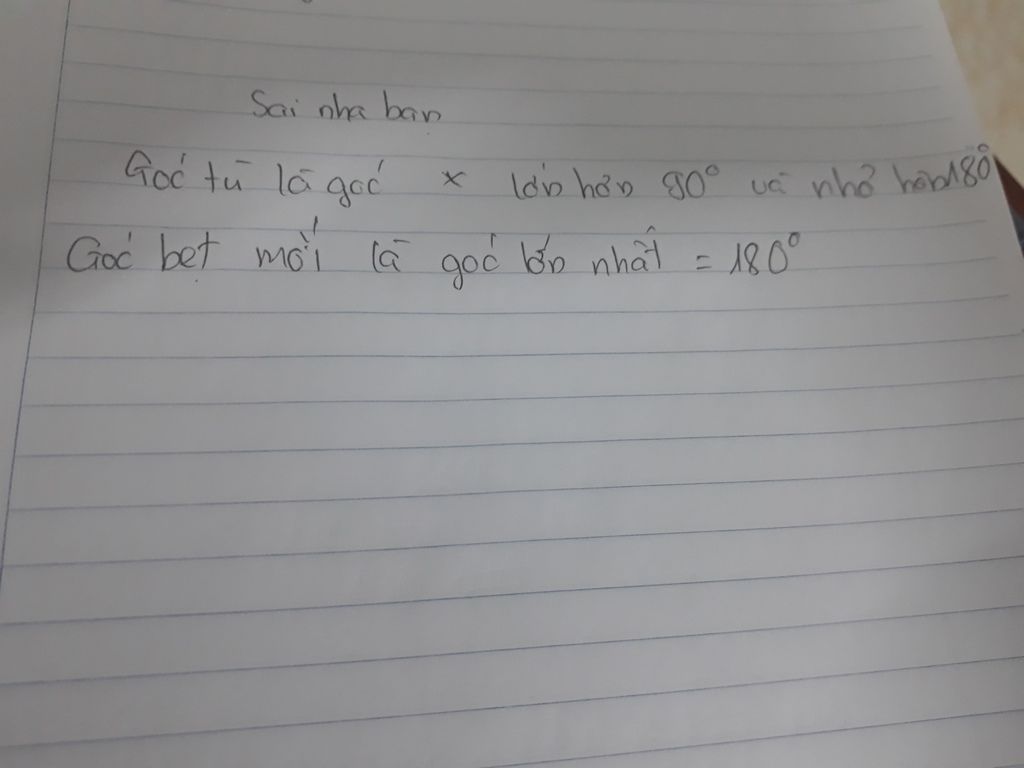 Sai nha bạn
Góc tù là góc x lớn hơn 90° và nhỏ hơn 180°
Góc bẹt mới là góc lớn nhất = 180°